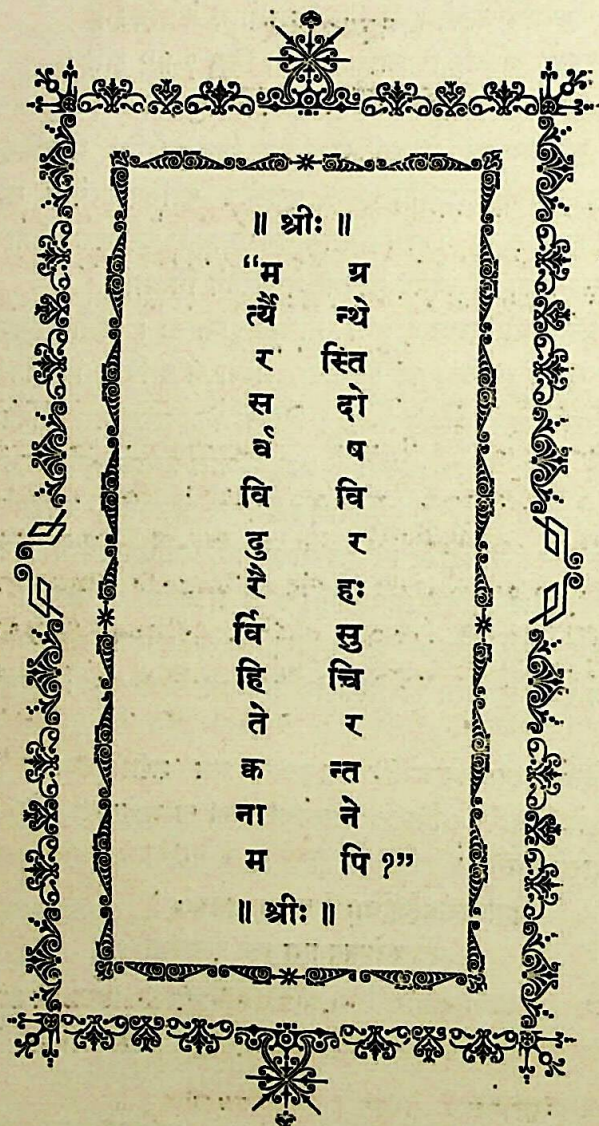 ॥ श्रीः ॥
“मर्त्यैरसर्वविदुरैर्विहितेक्वनाम
ग्रन्थेस्तिदोषविरहःसुचिरन्तनेपि ?”
॥ श्रीः ॥